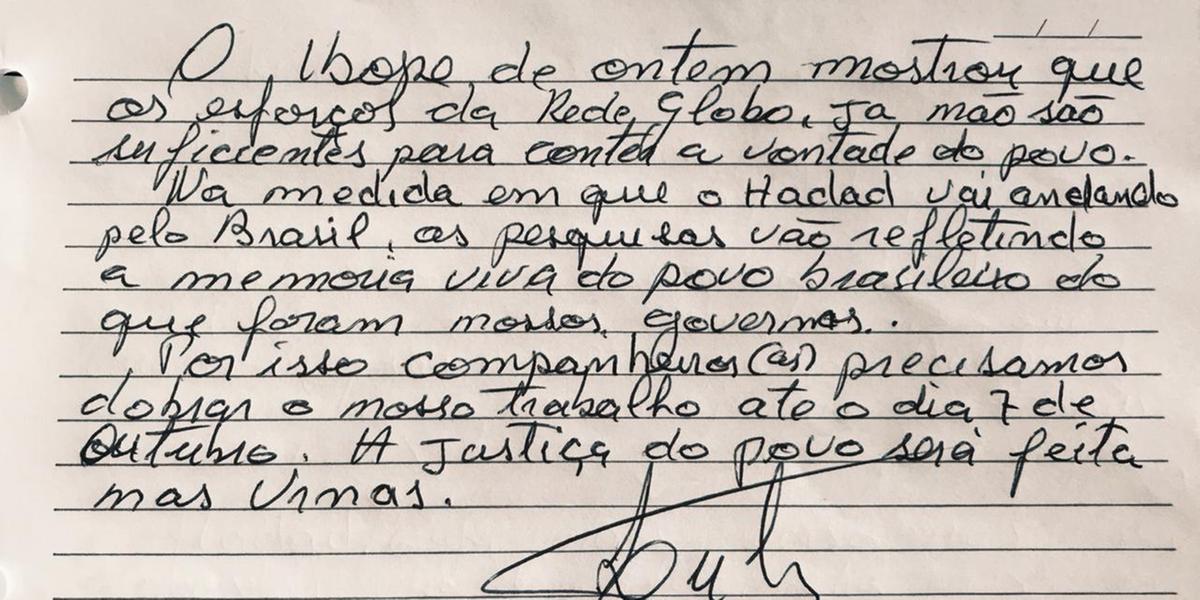 O Ibope de ontem mostrou que
os esforços da Rede Globo, ja não são
suficientes para conter a vontade do povo.
Na medida em que o Hadad vai andando
pelo Brasil, as pesquisas vão refletindo
a memoria viva do povo brasileiro do
que foram nossos governos.
Por isso companheiros(as) precisamos
dobrar o nosso trabalho ate o dia 7 de
Outubro. A Justiça do povo será feita
nas Urnas.